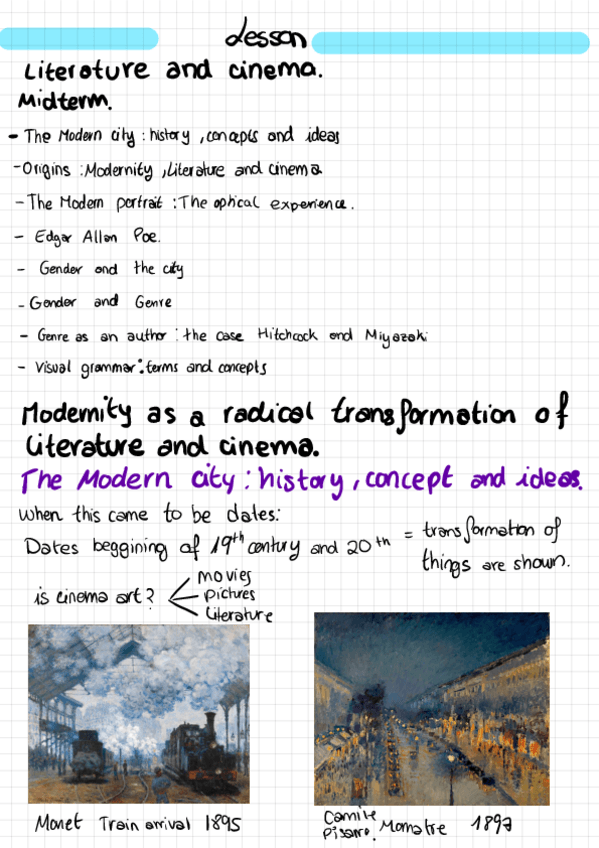 Lesson
Literature and cinema.
Midterm.
- The Modern city : history , concepts and ideas
- Origins : Modernity , Literature and cinema
- The Modern portrait : The optical experience.
- Edgar Allan Poe.
- Gender and the city
- Gender and Genre
- Genre as an author : the case Hitchcock and Miyazaki
- Visual grammar : terms and concepts
Modernity as a radical transformation of
Literature and cinema.
The Modern city : history , concept and ideas.
When this came to be dates:
Dates beggining of 19th century and 20th = transformation of
things are shown.
is cinema art?
movies
pictures
Literature
Monet Train arrival 1895
Camile
Pisarro. Momatre 1897